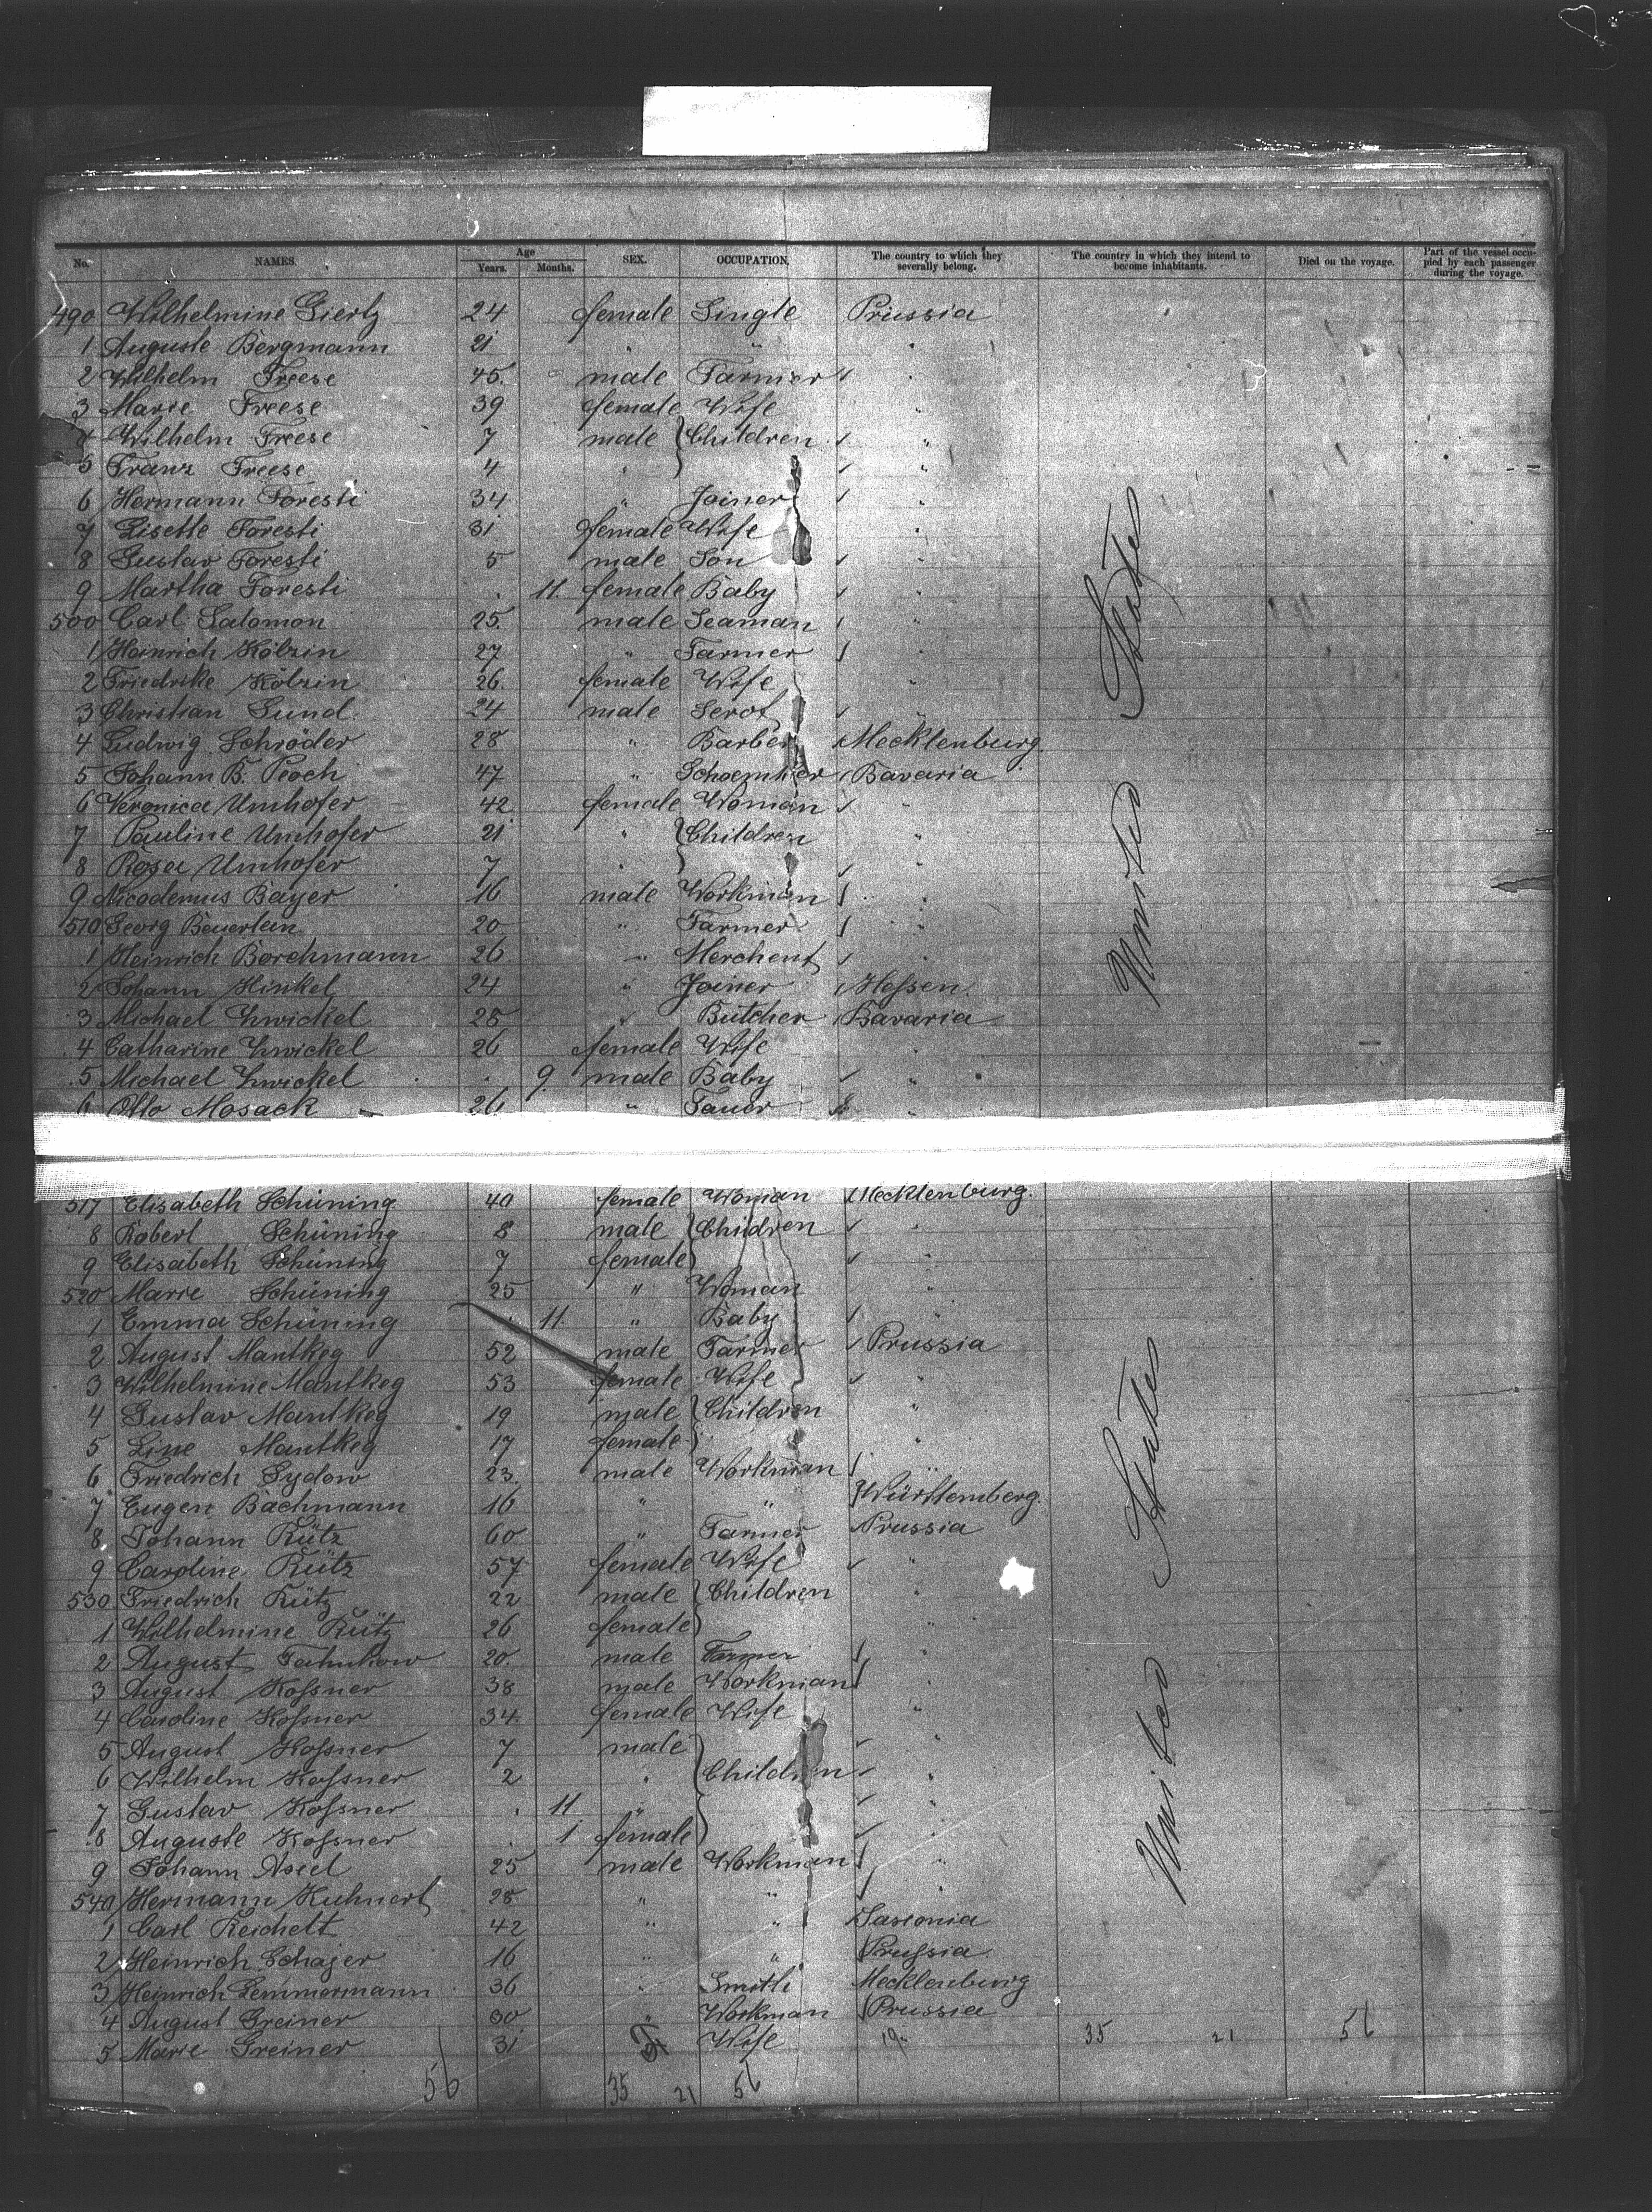 No. NAMES. Age Years. Months. SEX. OCCUPATION. The country to which they severally belong. The country in which they intend to become inhabitants. Died on the voyage. Part of the vessel occupied by each passenger during the voyage.
490 Wilhelmine Giertz 24 female Single Prussia
1 Auguste Bergmann 21 " " "
2 Wilhelm Freese 45. male Farmer "
3 Marie Freese 39 female Wife "
4 Wilhelm Freese 7 male Children "
5 Franz Freese 4 " "
6 Hermann Foresti 34 " Joiner "
7 Lisette Foresti 31 female Wife "
8 Gustav Foresti 5 male Son "
9 Martha Foresti 11. female Baby "
500 Carl Salomon 25. male Seaman "
1 Heinrich Kölzin 27 " Farmer "
2 Friedrike Kölzin 26. female Wife "
3 Christian Lund 24 male "
4 Ludwig Schröder 28 " Barber Mecklenburg.
5 Johann B. Peoch 47 " Bavaria
6 Veronica Umhofer 42 female Woman "
7 Pauline Umhofer 21 " Children "
8 Rosa Umhofer 7 " "
9 Nicodemus Bayer 16 male Workman "
510 Georg Beuerlein 20 " Farmer "
1 Heinrich Borchmann 26 " Merchent "
2 Johann Hinkel 24 " Joiner Hessen.
3 Michael Zwickel 28 " Butcher Bavaria
4 Catharine Zwickel 26 female Wife "
5 Michael Zwickel 9 male Baby "
6 Otto Mosack 26 " "
517 Elisabeth Schüning 40 female Woman Mecklenburg.
8 Robert Schüning 8 male Children "
9 Elisabeth Schüning 7 female "
520 Marie Schüning 25 " Woman "
1 Emma Schüning 11 " Baby "
2 August Mantkeg 52 male Farmer Prussia
3 Wilhelmine Mantkeg 53 female Wife "
4 Gustav Mantkeg 19 male Children "
5 Line Mantkeg 17 female "
6 Friedrich Sydow 23. male Workman "
7 Eugen Bachmann 16 " " Württemberg.
8 Johann Rütz 60 " Farmer Prussia
9 Caroline Rütz 57 female Wife "
530 Friedrich Rütz 22 male Children "
1 Wilhelmine Rütz 26 female "
2 August 20. male Farmer "
3 August Kossner 38 male Workman "
4 Caroline Kossner 34. female Wife "
5 August Kossner 7 male "
6 Wilhelm Kossner 2 " Children "
7 Gustav Kossner 11 " "
8 Auguste Kossner 1 female "
9 Johann 25 male Workman "
540 Hermann Kuhnert 28 " " "
1 Carl Reichelt 42 " " Saxonia
2 Heinrich Schajer 16 " " Prussia.
3 Heinrich Lemmermann 36 " Smith Mecklenburg
4 August Greiner 30 " Workman Prussia
5 Marie Greiner 31 Wife 19 35 21 56
56 35 21 56
United States
United States